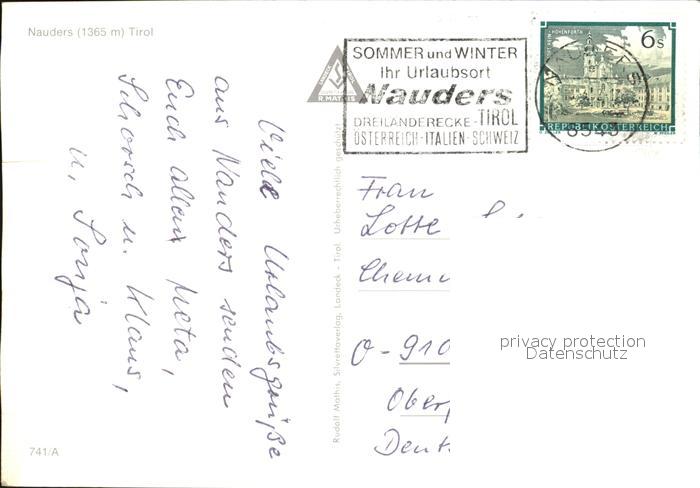 Nauders (1365 m) Tirol
R. MATHIS
SOMMER und WINTER
Ihr Urlaubsort
Nauders
TIROL
DREILÄNDERECKE-
ÖSTERREICH-ITALIEN-SCHWEIZ
6s
REPUBLIK ÖSTERREICH
Viele Urlaubsgrüße
aus Nauders senden
Euch allen Meta,
Schorsch u. Klaus,
u. Sonja
Rudolf Mathis, Silvrettaverlag, Landeck - Tirol. Urheberrechtlich geschützt
Frau
Lotte
Chem
O-910
Ober
Deut
privacy protection
Datenschutz
741/A